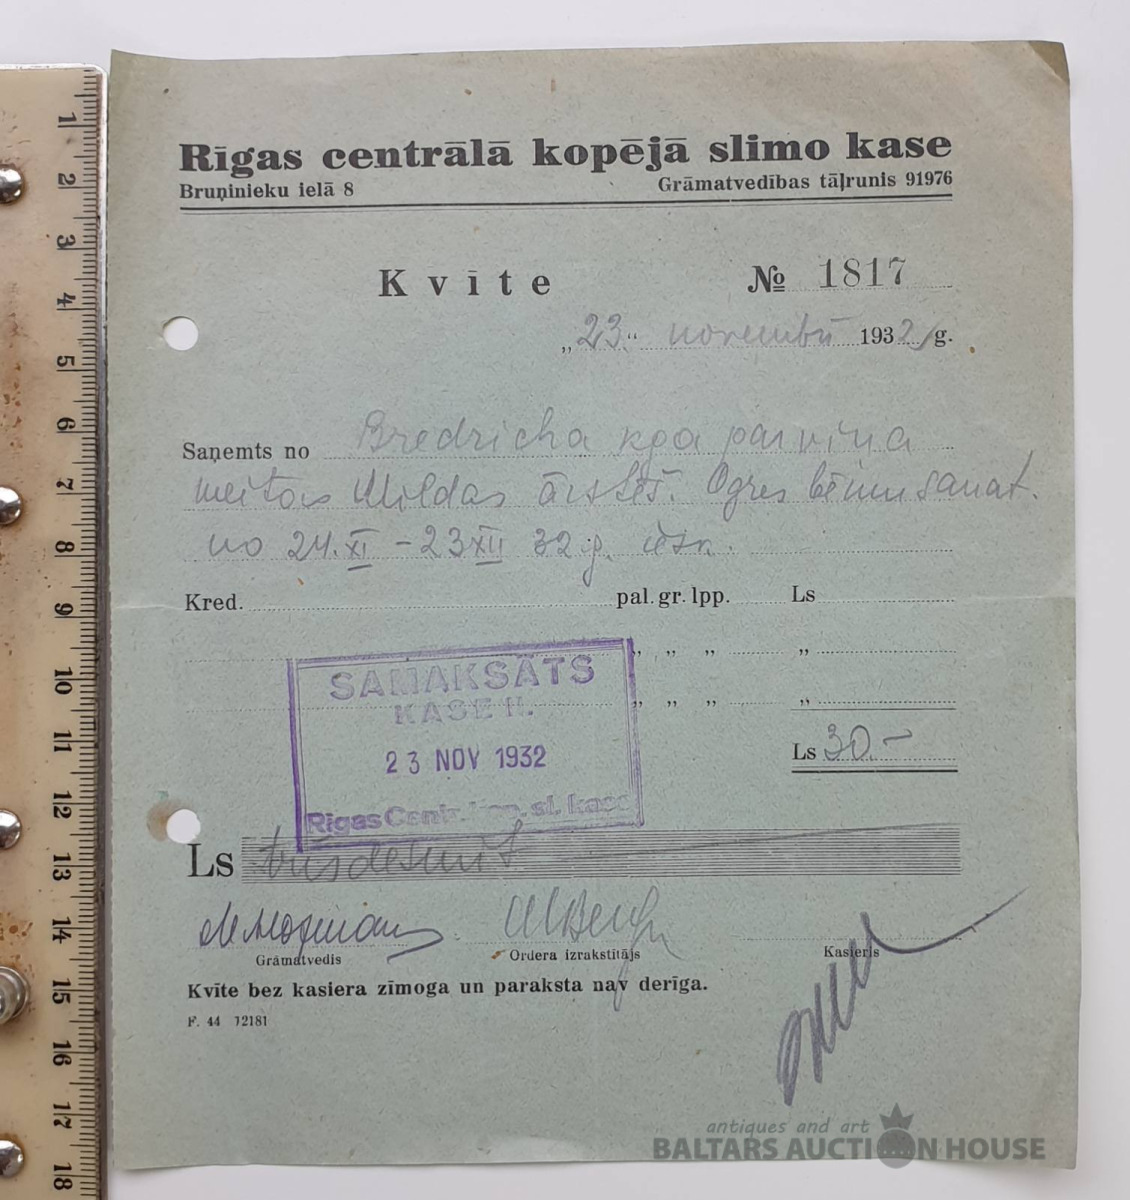 Rīgas centrālā kopējā slimo kase
Bruņinieku ielā 8 Grāmatvedības tāļrunis 91976
Kvīte № 1817
„23“ novembrī 1932 g.
Saņemts no Bredricha kga par viņa
meitas Mildas ārstēš. Ogres bērnu sanat.
no 24.XI – 23 XII 32 g. iesk.
Kred. pal. gr. lpp. Ls
„ „ „ „
„ „ „ „
Ls 30.–
SAMAKSĀTS
KASE II.
23 NOV 1932
Rīgas Centr. kop. sl. kase
Ls trīsdesmit
Grāmatvedis Ordera izrakstītājs Kasieris
Kvīte bez kasiera zīmoga un paraksta nav derīga.
F. 44 12181
1
2
3
4
5
6
7
8
9
10
11
12
13
14
15
16
17
18
antiques and art
BALTARS AUCTION HOUSE